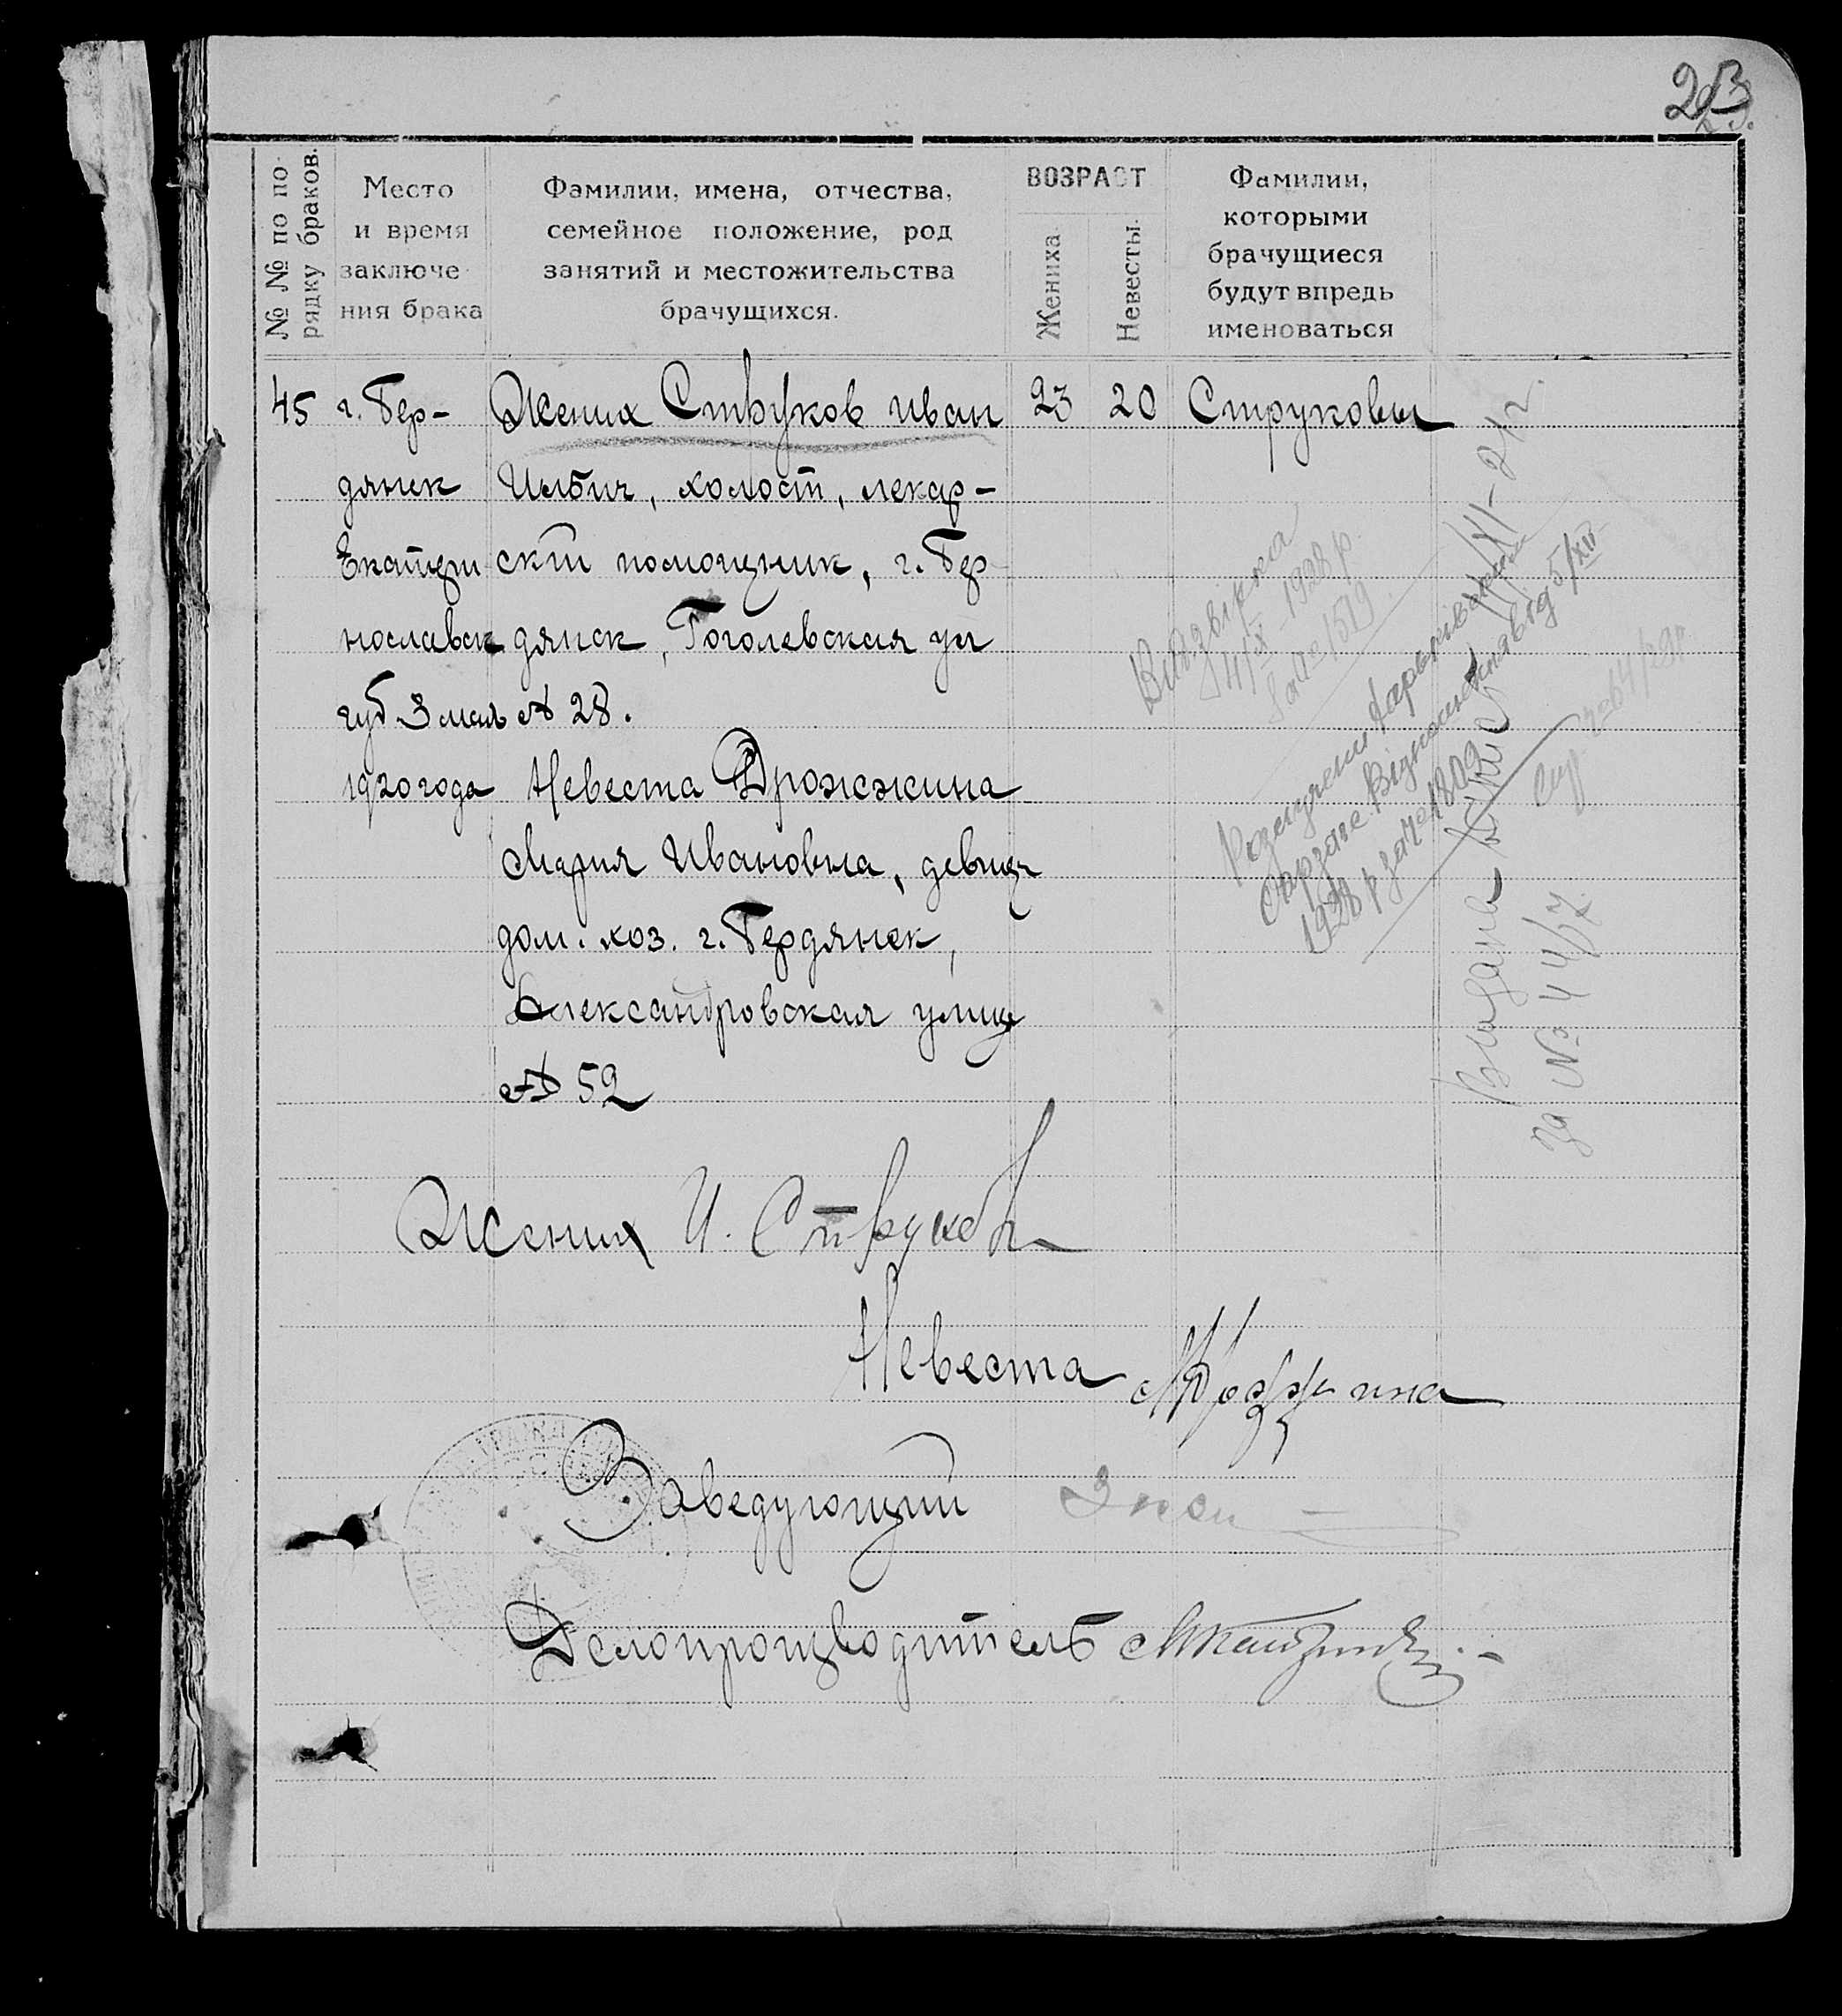 23
№ № по по-
рядку браков.
Место
и время
заключе-
ния брака
Фамилии, имена, отчества,
семейное положение, род
занятий и местожительства
брачущихся.
ВОЗРАСТ
Жениха
Невесты
Фамилии,
которыми
брачущиеся
будут впредь
именоваться
45
г. Бер-
дянск
Екатери
нославск
губ 3 мая
1920 года
Жених Струков Иван
Ильич, холост, лекар-
ский помощник, г. Бер
дянск, Гоголевская ул
№ 28.
Невеста Дрожжина
Мария Ивановна, девица
дом. хоз. г. Бердянск,
Александровская улица
№ 52
23
20
Струковы
1928 р.
1519
5/XII
1928 р за № 1809
Видана
за № 44/7
Жених И. Струков
Невеста М Дрожжина
Заведующий
Делопроизводитель